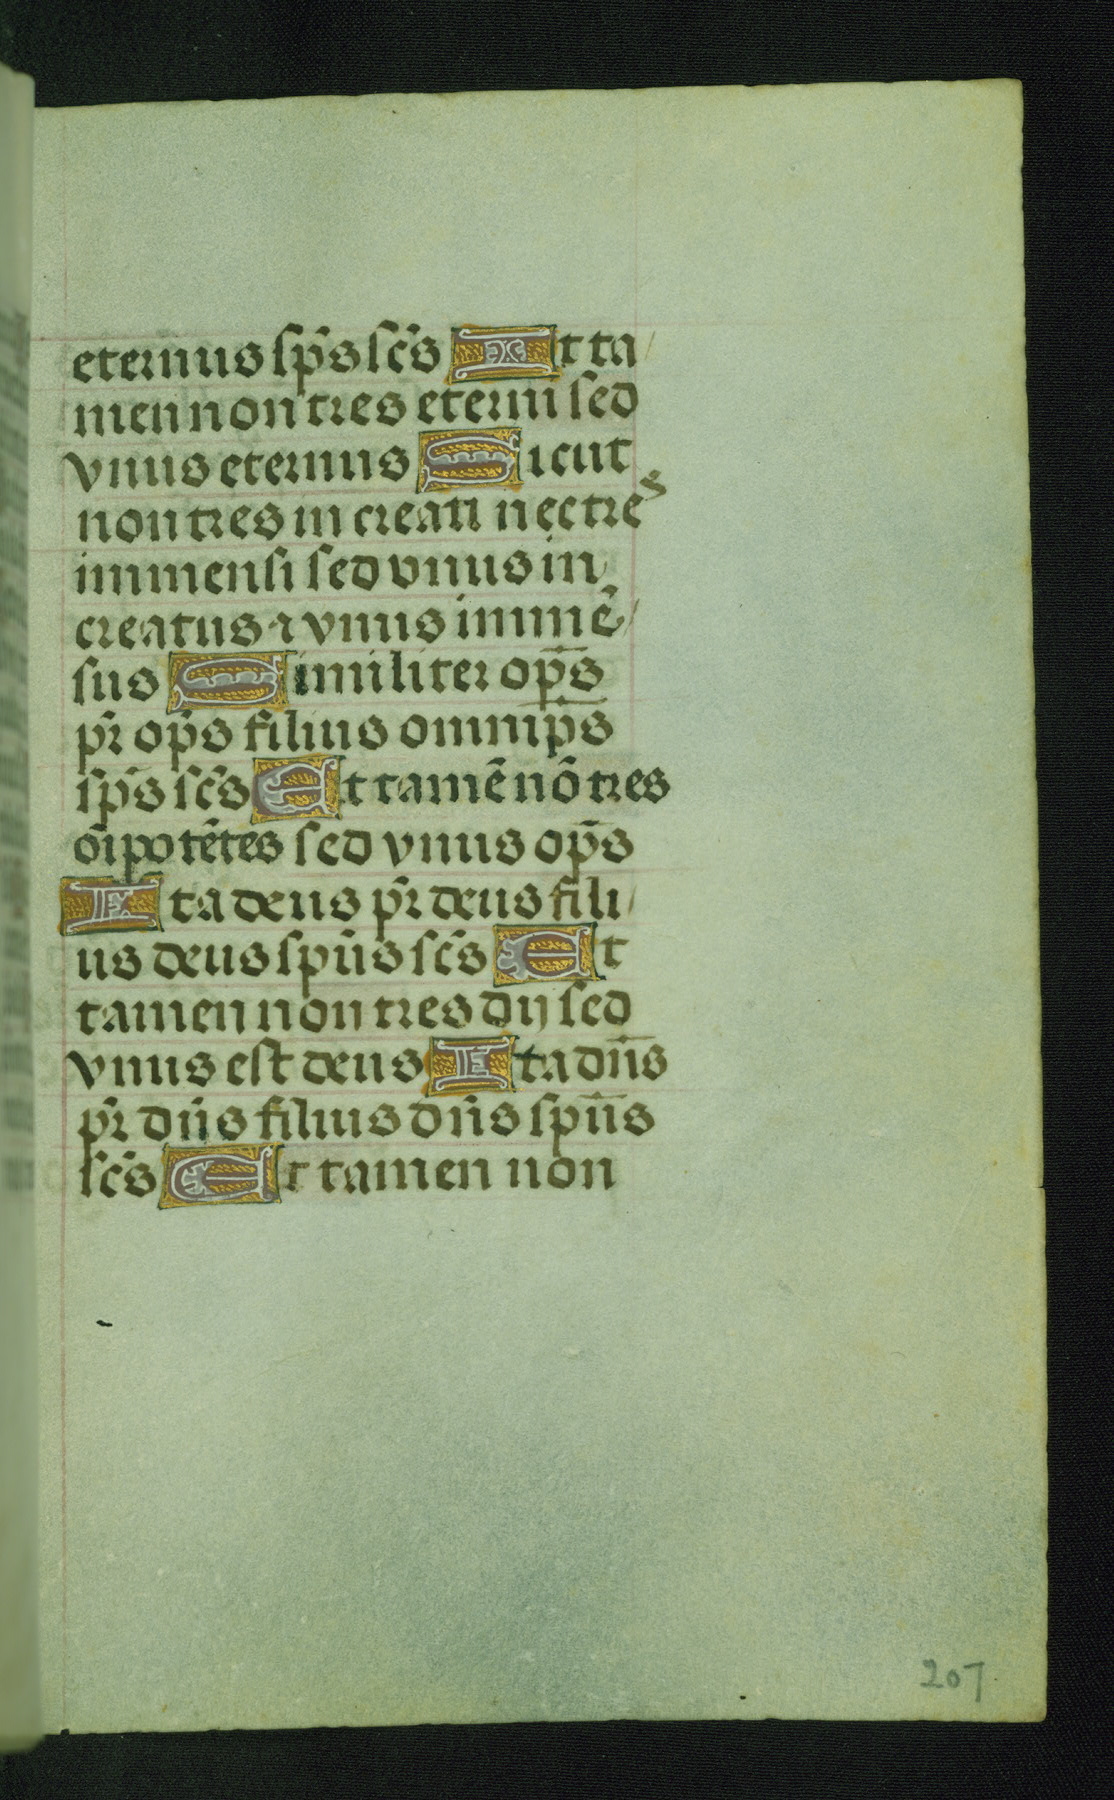 eternus sp̄s sc̄s Et ta/
men non tres eterni sed
vnus eternus Sicut
non tres increati nec tres
immensi sed vnus in/
creatus ⁊ vnus immē/
sus Similiter op̄s
pr̄ op̄s filius omnip̄s
sp̄s sc̄s Et tamē nō tres
oīpotētes sed vnus op̄s
Ita deus pr̄ deus fili/
us deus spūs sc̄s Et
tamen non tres dij sed
vnus est deus Ita dn̄s
pr̄ dn̄s filius dn̄s spūs
sc̄s Et tamen non
207